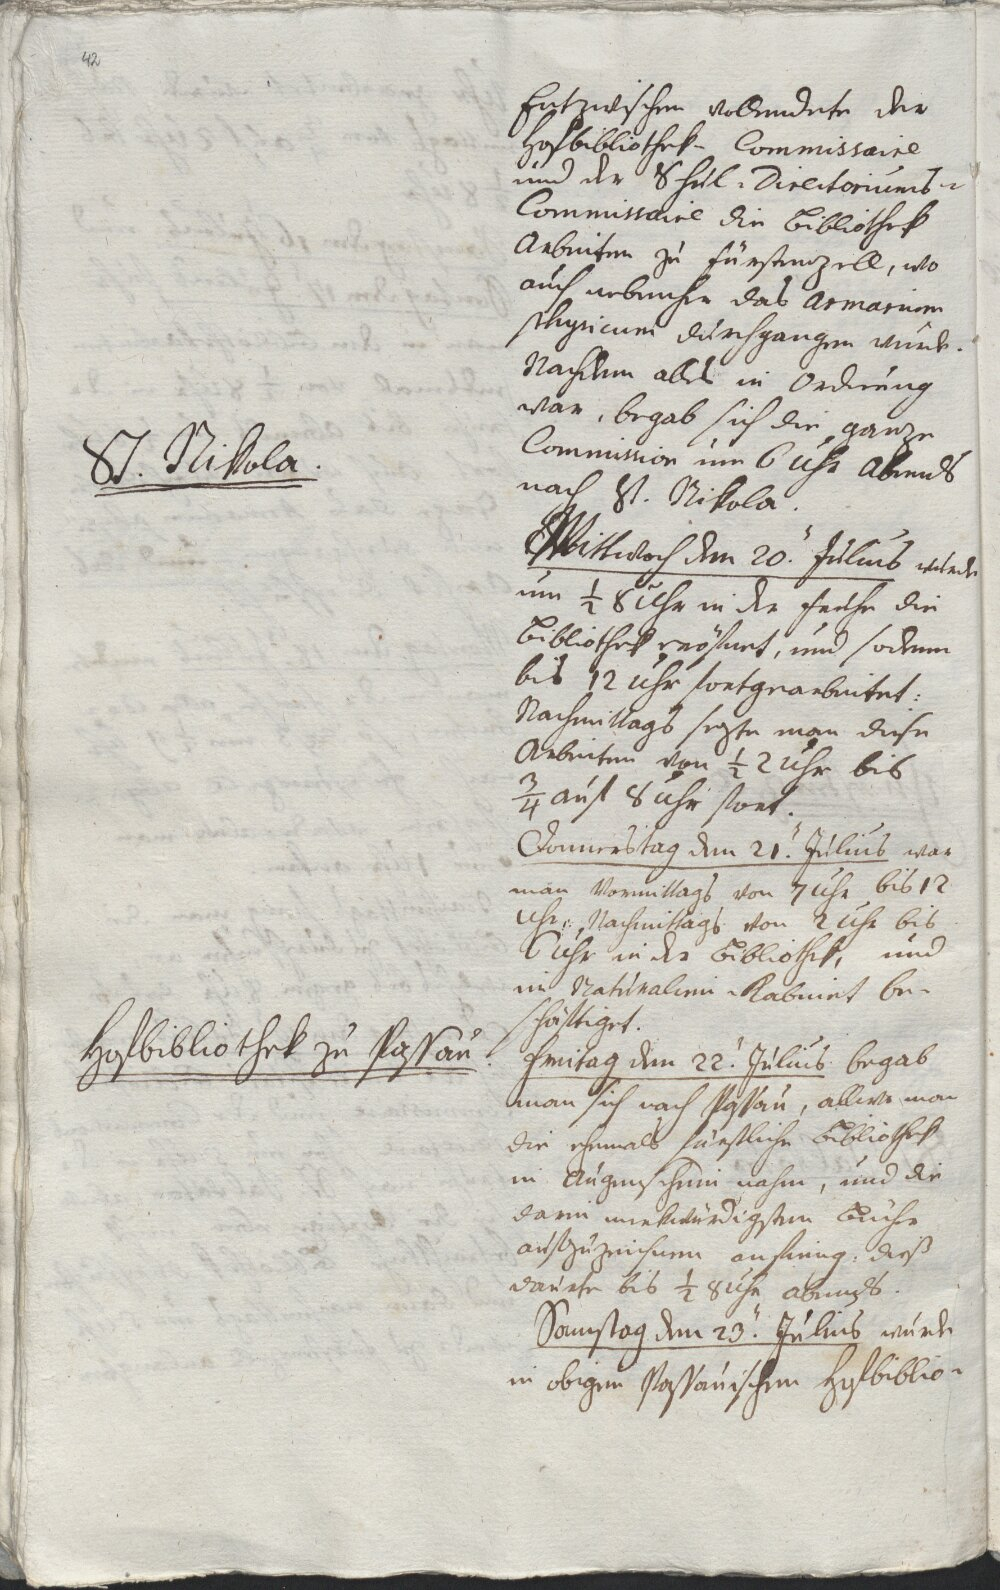 42
Entzwischen vollendete der
Hofbibliothek- Commissaire
und der Schul-Directoriums-
Commissaire die Bibliothek
Arbeiten zu Fürstenzell, wo
auch nebenher das Armarium
Physicum durchgangen wurde.
Nachdem alles in Ordnung
war, begab sich die ganze
Commission um 6 Uhr Abends
nach St. Nikola.
St. Nikola.
Mittwoch den 20.n Julius wurde
um 1/2 8 Uhr in der Frühe die
Bibliothek eröfnet, und sodenn
bis 12 Uhr fortgearbeitet:
Nachmittags sezte man diese
Arbeiten von 1/2 2 Uhr bis
3/4 auf 8 Uhr fort.
Donnerstag den 21.n Julius war
man Vormittags von 7 Uhr bis 12
Uhr: Nachmittags von 2 Uhr bis
6 Uhr in der Bibliothek, und
im Naturalien-Kabinet be-
schäftiget.
Hofbibliothek zu Passau.
Freitag den 22.n Julius begab
man sich nach Passau, allwo man
die ehemals fürstliche Bibliothek
in Augenschein nahm, und die
darin merkwürdigsten Bücher
aufzuzeichnen anfieng: dieß
dauerte bis 1/2 8 Uhr abends.
Samstag den 23.n Julius wurde
in obigen Passauischen Hofbiblio-